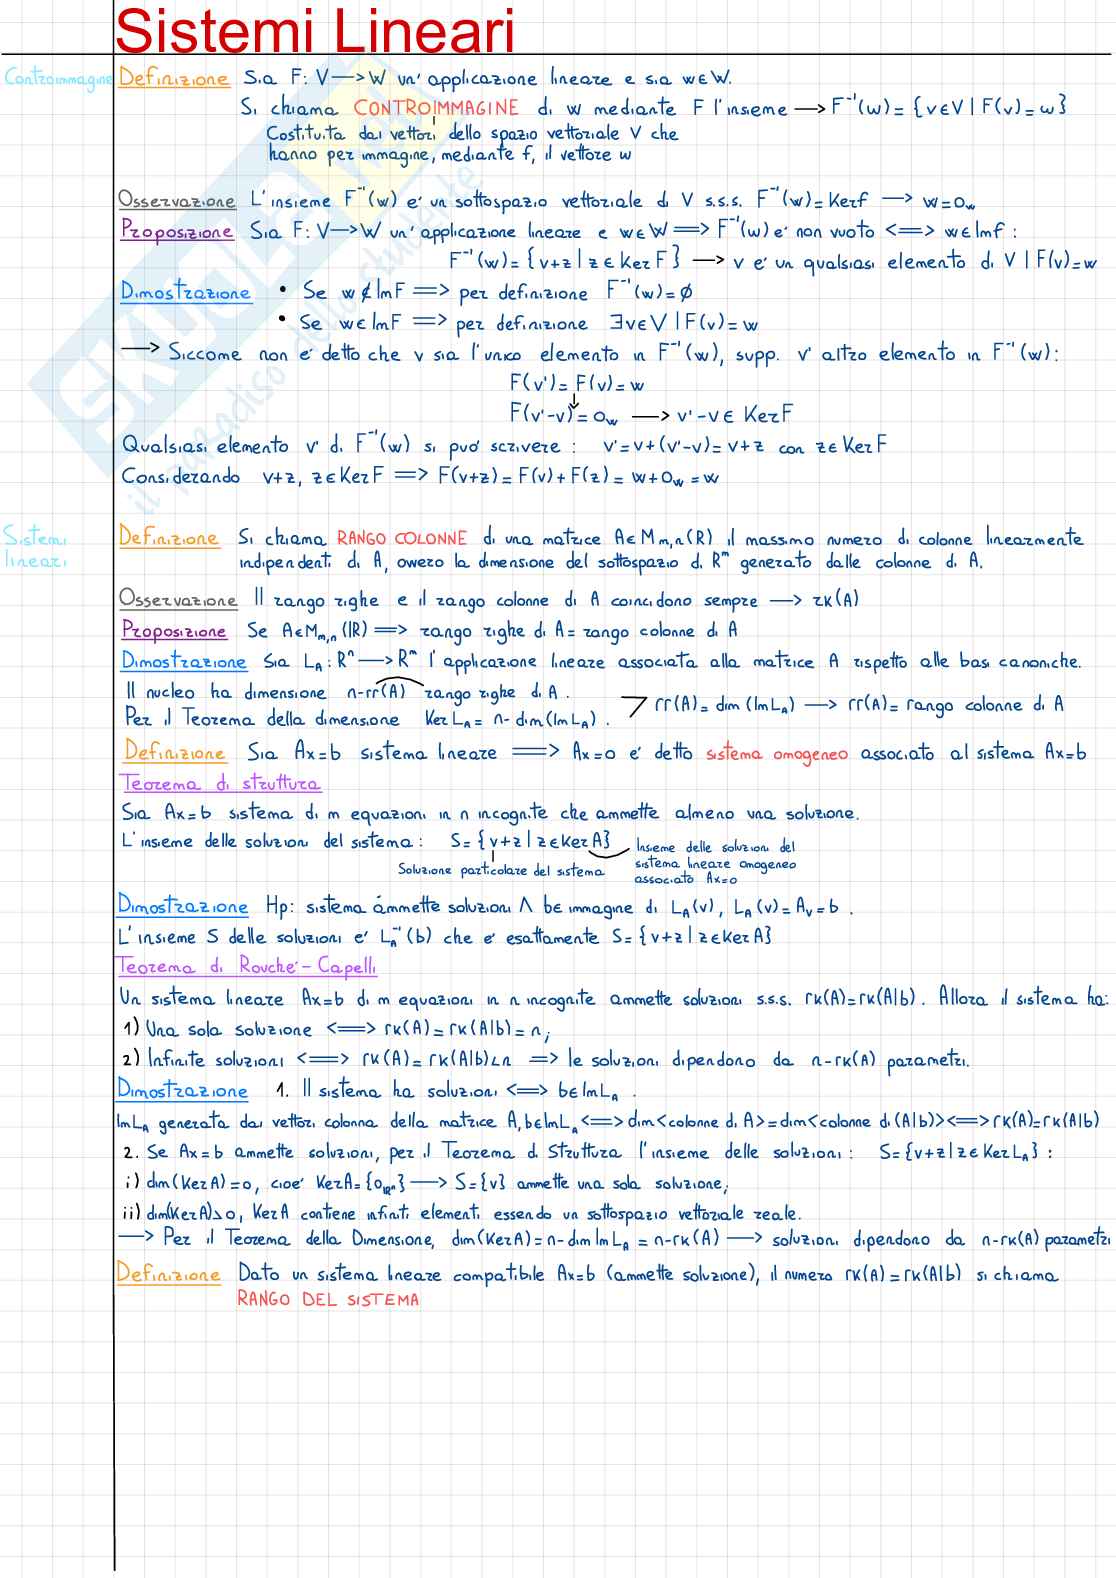 Sistemi Lineari
Controimmagine
Definizione Sia F: V —> W un' applicazione lineare e sia w ∈ W.
Si chiama CONTROIMMAGINE di w mediante F l'insieme —> F⁻¹(w) = {v ∈ V | F(v) = w}
Costituita dai vettori dello spazio vettoriale V che
hanno per immagine, mediante f, il vettore w
Osservazione L'insieme F⁻¹(w) e' un sottospazio vettoriale di V s.s.s. F⁻¹(w) = Kerf —> w = 0w
Proposizione Sia F: V —> W un' applicazione lineare e w ∈ W ==> F⁻¹(w) e' non vuoto <==> w ∈ Imf :
F⁻¹(w) = {v+z | z ∈ Ker F} —> v e' un qualsiasi elemento di V | F(v) = w
Dimostrazione • Se w ∉ ImF ==> per definizione F⁻¹(w) = ∅
• Se w ∈ ImF ==> per definizione ∃v ∈ V | F(v) = w
—> Siccome non e' detto che v sia l'unico elemento in F⁻¹(w), supp. v' altro elemento in F⁻¹(w) :
F(v') = F(v) = w
F(v'-v) = 0w —> v'-v ∈ KerF
Qualsiasi elemento v' di F⁻¹(w) si puo' scrivere : v' = v+(v'-v) = v+z con z ∈ Ker F
Considerando v+z, z ∈ Ker F ==> F(v+z) = F(v) + F(z) = w + 0w = w
Sistemi
lineari
Definizione Si chiama RANGO COLONNE di una matrice A ∈ Mm,n(R) il massimo numero di colonne linearmente
indipendenti di A, ovvero la dimensione del sottospazio di Rᵐ generato dalle colonne di A.
Osservazione Il rango righe e il rango colonne di A coincidono sempre —> rk(A)
Proposizione Se A ∈ Mm,n(IR) ==> rango righe di A = rango colonne di A
Dimostrazione Sia LA : Rⁿ —> Rᵐ l'applicazione lineare associata alla matrice A rispetto alle basi canoniche.
Il nucleo ha dimensione n-rr(A) rango righe di A .
Per il Teorema della dimensione Ker LA = n-dim(Im LA) .
> rr(A) = dim (Im LA) —> rr(A) = rango colonne di A
Definizione Sia Ax=b sistema lineare ==> Ax=0 e' detto sistema omogeneo associato al sistema Ax=b
Teorema di struttura
Sia Ax=b sistema di m equazioni in n incognite che ammette almeno una soluzione.
L'insieme delle soluzioni del sistema : S = {v+z | z ∈ Ker A}
Soluzione particolare del sistema
Insieme delle soluzioni del
sistema lineare omogeneo
associato Ax=0
Dimostrazione Hp: sistema ammette soluzioni Λ b ∈ immagine di LA(v), LA(v) = Av = b .
L'insieme S delle soluzioni e' LA⁻¹(b) che e' esattamente S = {v+z | z ∈ Ker A}
Teorema di Rouche'-Capelli
Un sistema lineare Ax=b di m equazioni in n incognite ammette soluzioni s.s.s. rk(A) = rk(A|b) . Allora il sistema ha:
1) Una sola soluzione <==> rk(A) = rk(A|b) = n;
2) Infinite soluzioni <==> rk(A) = rk(A|b) < n ==> le soluzioni dipendono da n-rk(A) parametri.
Dimostrazione 1. Il sistema ha soluzioni <==> b ∈ Im LA .
Im LA generata dai vettori colonna della matrice A, b ∈ Im LA <==> dim<colonne di A> = dim<colonne di (A|b)> <==> rk(A) = rk(A|b)
2. Se Ax=b ammette soluzioni, per il Teorema di Struttura l'insieme delle soluzioni : S = {v+z | z ∈ Ker LA} :
i) dim(Ker A) = 0, cioe' Ker A = {0IRⁿ} —> S = {v} ammette una sola soluzione;
ii) dim(Ker A) > 0, Ker A contiene infiniti elementi essendo un sottospazio vettoriale reale.
—> Per il Teorema della Dimensione, dim(Ker A) = n-dim Im LA = n-rk(A) —> soluzioni dipendono da n-rk(A) parametri
Definizione Dato un sistema lineare compatibile Ax=b (ammette soluzione), il numero rk(A) = rk(A|b) si chiama
RANGO DEL SISTEMA